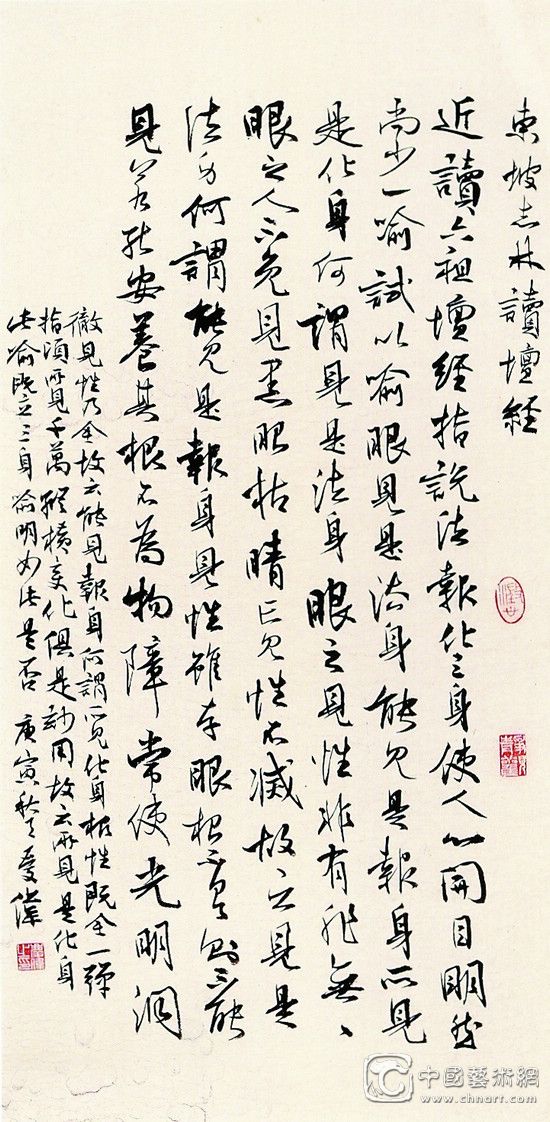 東坡志林讀壇經
近讀六祖壇經指說法報化三身使人心開目明然
尚少一喻試以喻眼見是法身能見是報身所見
是化身何謂見是法身眼之見性非有非無〻
眼之人不免見黑眼枯睛亡見性不滅故云見是
法身何謂能見是報身見性雖存眼根不具則不能
見若能安養其根不為物障常使光明洞
徹見性乃全故云能見報身何謂所見化身根性既全一彈
指頃所見千萬縱橫變化俱是妙用故云所見是化身
此喻既立三身喻明如此是否 庚寅秋 偉
中國藝術網
www.chnart.com